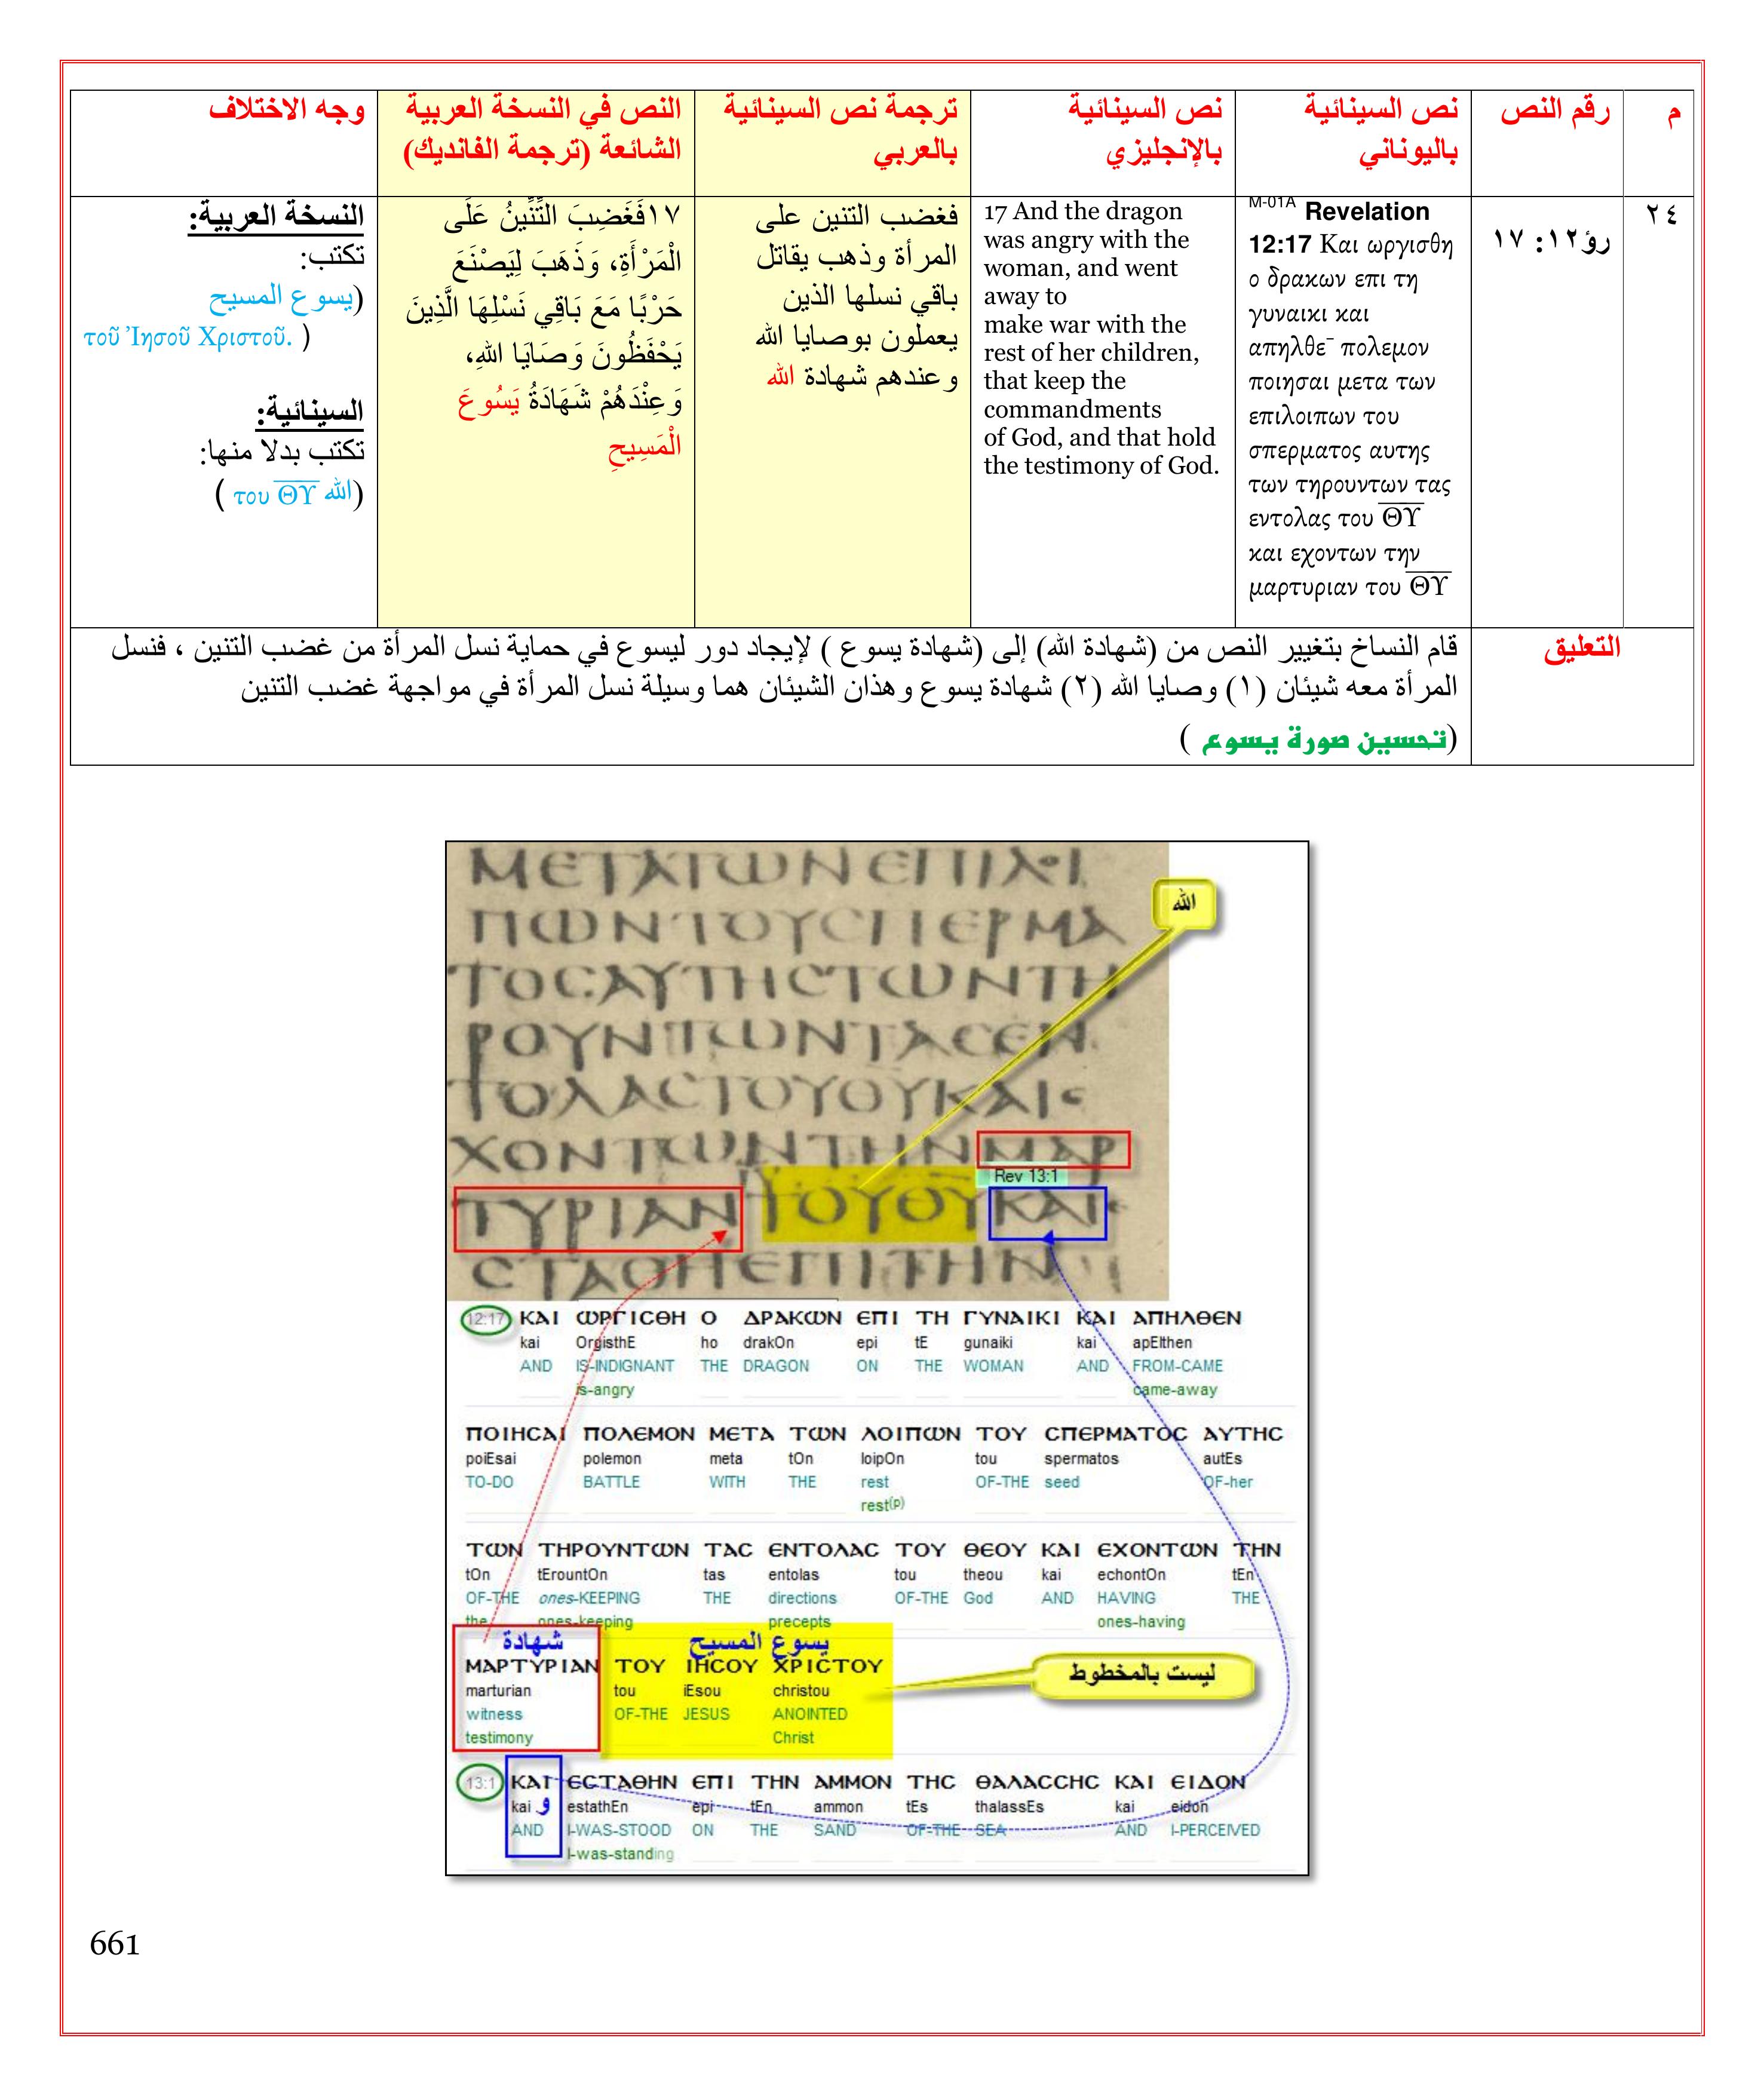 م
رقم النص
نص السينائية
باليوناني
نص السينائية
بالإنجليزي
ترجمة نص السينائية
بالعربي
النص في النسخة العربية
الشائعة (ترجمة الفانديك)
وجه الاختلاف
٢٤
رؤ١٢: ١٧
M-01A Revelation
12:17 Και ωργισθη
ο δρακων επι τη
γυναικι και
απηλθε¯ πολεμον
ποιησαι μετα των
επιλοιπων του
σπερματος αυτης
των τηρουντων τας
εντολας του ΘΥ
και εχοντων την
μαρτυριαν του ΘΥ
17 And the dragon
was angry with the
woman, and went
away to
make war with the
rest of her children,
that keep the
commandments
of God, and that hold
the testimony of God.
فغضب التنين على
المرأة وذهب يقاتل
باقي نسلها الذين
يعملون بوصايا الله
وعندهم شهادة الله
١٧فَغَضِبَ التِّنِّينُ عَلَى
الْمَرْأَةِ، وَذَهَبَ لِيَصْنَعَ
حَرْبًا مَعَ بَاقِي نَسْلِهَا الَّذِينَ
يَحْفَظُونَ وَصَايَا اللهِ،
وَعِنْدَهُمْ شَهَادَةُ يَسُوعَ
الْمَسِيحِ
النسخة العربية:
تكتب:
(يسوع المسيح
τοῦ Ἰησοῦ Χριστοῦ. )
السينائية:
تكتب بدلا منها:
(الله του ΘΥ )
التعليق
قام النساخ بتغيير النص من (شهادة الله) إلى (شهادة يسوع ) لإيجاد دور ليسوع في حماية نسل المرأة من غضب التنين ، فنسل
المرأة معه شيئان (١) وصايا الله (٢) شهادة يسوع وهذان الشيئان هما وسيلة نسل المرأة في مواجهة غضب التنين
(تحسين صورة يسوع )
ΜΕΤΑΤΩΝΕΠΙΛΟΙ
ΠΩΝΤΟΥСΠΕΡΜΑ
ΤΟСΑΥΤΗСΤΩΝΤΗ
ΡΟΥΝΤΩΝΤΑСΕΝ
ΤΟΛΑСΤΟΥΘΥΚΑΙΕ
ΧΟΝΤΩΝΤΗΝΜΑΡ
ΤΥΡΙΑΝΤΟΥΘΥΚΑΙΕ
СΤΑΘΗΕΠΙΤΗΝ
الله
Rev 13:1
12:17 ΚΑΙ ΩΡΓΙСΘΗ Ο ΔΡΑΚΩΝ ΕΠΙ ΤΗ ΓΥΝΑΙΚΙ ΚΑΙ ΑΠΗΛΘΕΝ
kai OrgisthE ho drakOn epi tE gunaiki kai apElthen
AND IS-INDIGNANT THE DRAGON ON THE WOMAN AND FROM-CAME
is-angry came-away
ΠΟΙΗСΑΙ ΠΟΛΕΜΟΝ ΜΕΤΑ ΤΩΝ ΛΟΙΠΩΝ ΤΟΥ СΠΕΡΜΑΤΟС ΑΥΤΗС
poiEsai polemon meta tOn loipOn tou spermatos autEs
TO-DO BATTLE WITH THE rest OF-THE seed OF-her
rest(p)
ΤΩΝ ΤΗΡΟΥΝΤΩΝ ΤΑС ΕΝΤΟΛΑС ΤΟΥ ΘΕΟΥ ΚΑΙ ΕΧΟΝΤΩΝ ΤΗΝ
tOn tErountOn tas entolas tou theou kai echontOn tEn
OF-THE ones-KEEPING THE directions OF-THE God AND HAVING THE
the ones-keeping precepts ones-having
شهادة يسوع المسيح
ΜΑΡΤΥΡΙΑΝ ΤΟΥ ΙΗСΟΥ ΧΡΙСΤΟΥ
marturian tou iEsou christou
witness OF-THE JESUS ANOINTED
testimony Christ
ليست بالمخطوط
13:1 ΚΑΙ ΕСΤΑΘΗΝ ΕΠΙ ΤΗΝ ΑΜΜΟΝ ΤΗС ΘΑΛΑССΗС ΚΑΙ ΕΙΔΟΝ
kai و estathEn epi tEn ammon tEs thalassEs kai eidon
AND I-WAS-STOOD ON THE SAND OF-THE SEA AND I-PERCEIVED
I-was-standing
661